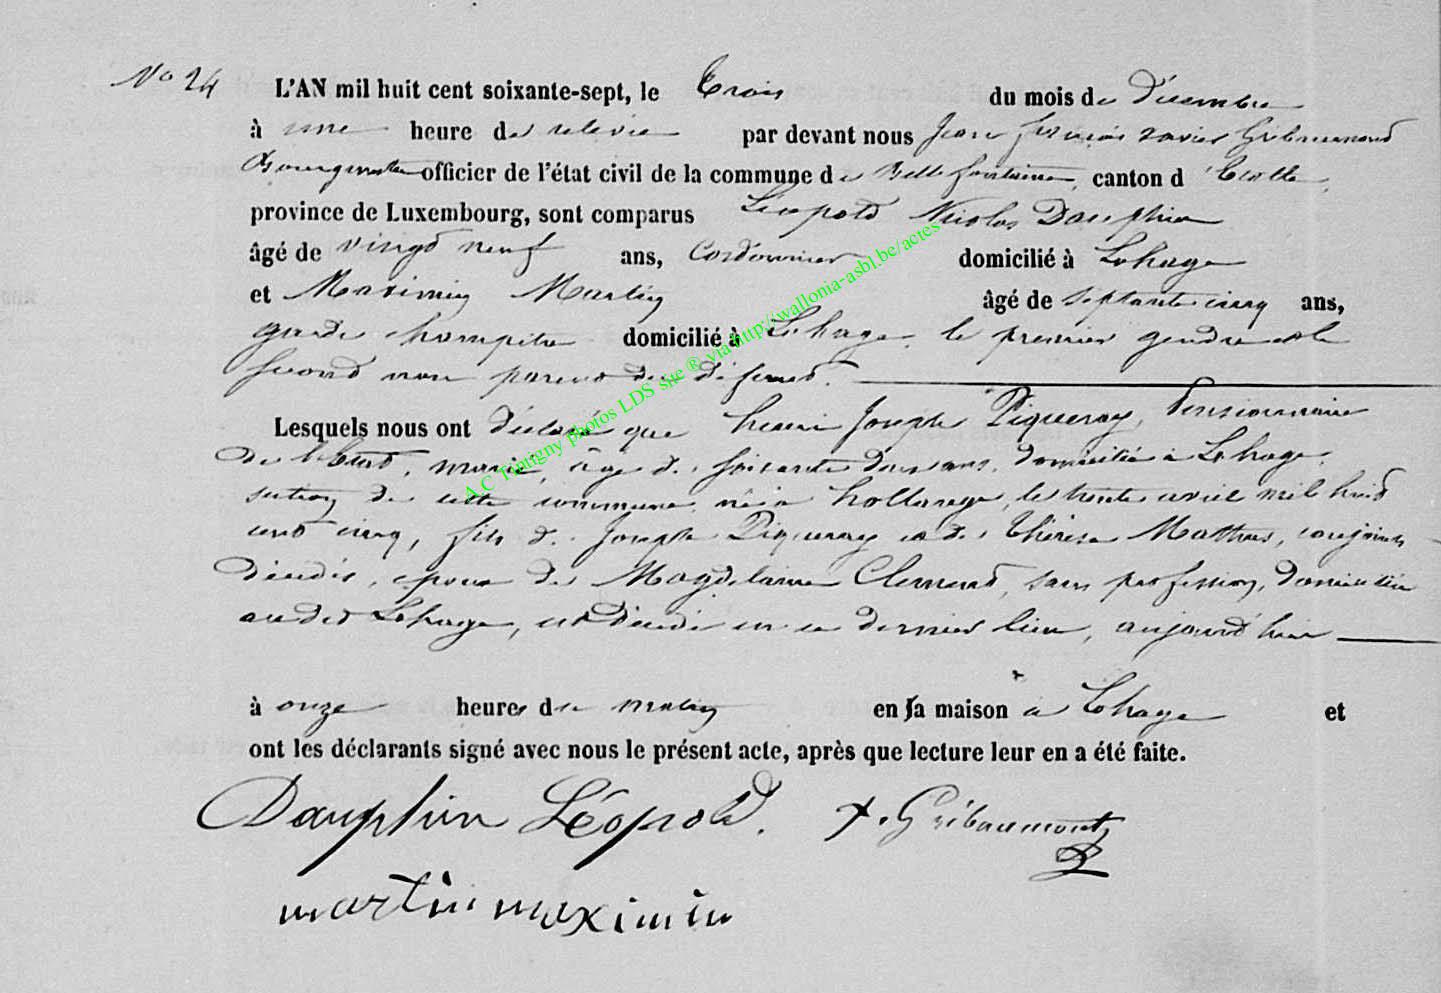 No 24 L'AN mil huit cent soixante-sept, le Trois du mois de Décembre
à une heure de relevée par devant nous Jean françois xavier Gribaumont
Bourgmestre officier de l'état civil de la commune de Bellefontaine, canton d'Etalle,
province de Luxembourg, sont comparus Léopold Nicolas Dauphin
âgé de vingt neuf ans, Cordonnier domicilié à Lahage
et Maximin Martin âgé de septante cinq ans,
garde champêtre domicilié à Lahage, le premier gendre et le
second non parent du défunt.
Lesquels nous ont déclaré que henri Joseph Piqueray, Pensionnaire
de l'Etat, marié, âgé de soixante deux ans, domicilié à Lahage,
section de cette commune, né à hollange, le trente avril mil huit
cent cinq, fils de Joseph Piqueray et de Thérèse Mathus, conjoints
décédés, époux de Magdelaine Clement, sans profession, domiciliée
audit Lahage, est décédé en ce dernier lieu, aujourd'hui
à onze heures du matin en sa maison à Lahage et
ont les déclarants signé avec nous le présent acte, après que lecture leur en a été faite.
Dauphin Léopold. X. Gribaumont
martin maximin
A.C Tintigny photos LDS site ® via http://wallonia-asbl.be/actes